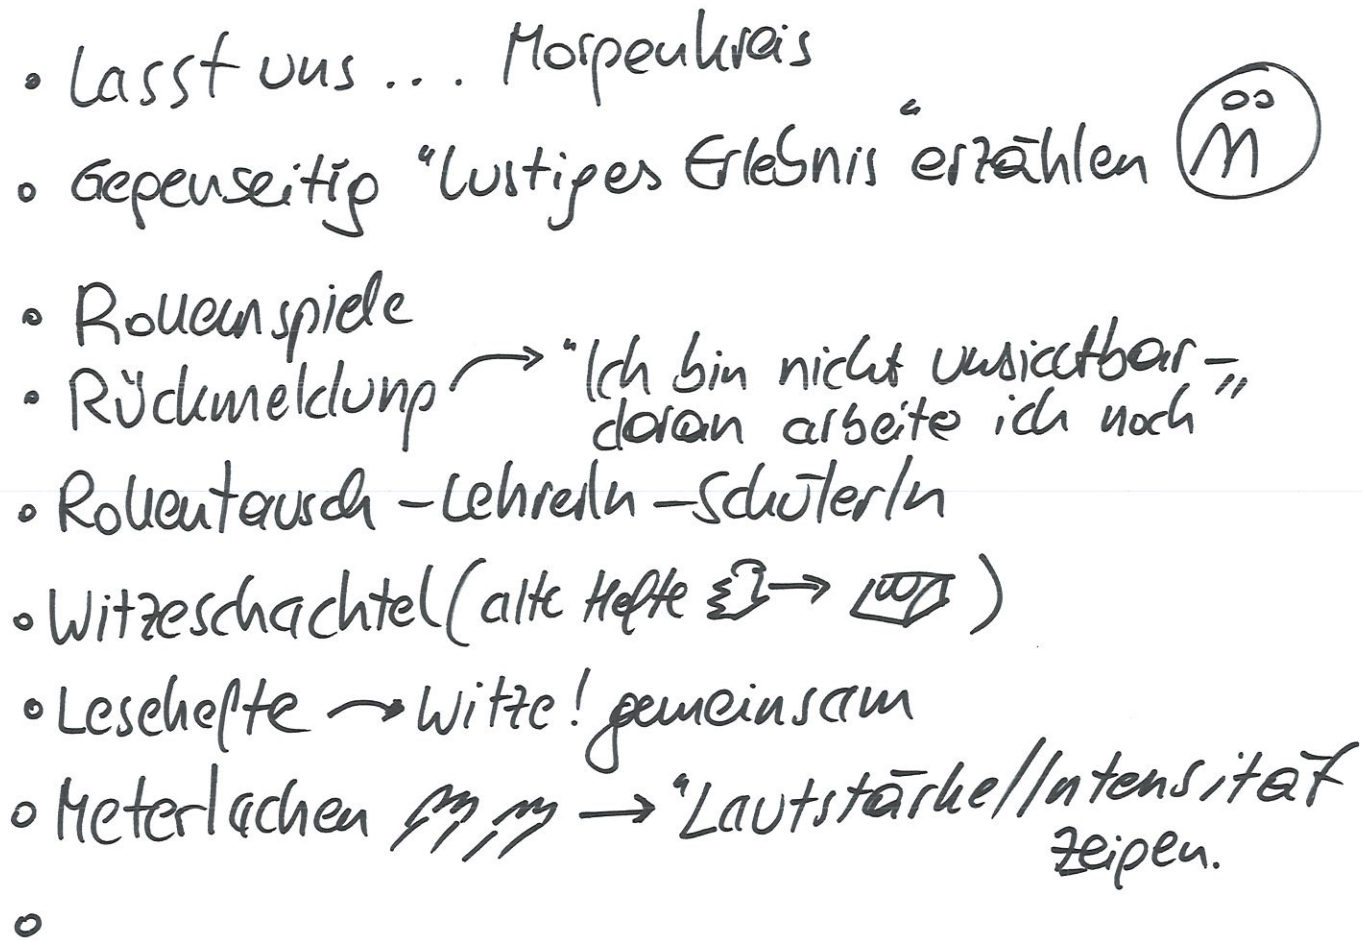 • Lasst uns ... Morgenkreis
• Gegenseitig "lustiges Erlebnis" erzählen
• Rollenspiele
• Rückmeldung → "Ich bin nicht unsichtbar –
daran arbeite ich noch"
• Rollentausch – LehrerIn – SchülerIn
• Witzeschachtel (alte Hefte → )
• Lesehefte → Witze! gemeinsam
• Meterlachen → "Lautstärke/Intensität
zeigen.
•